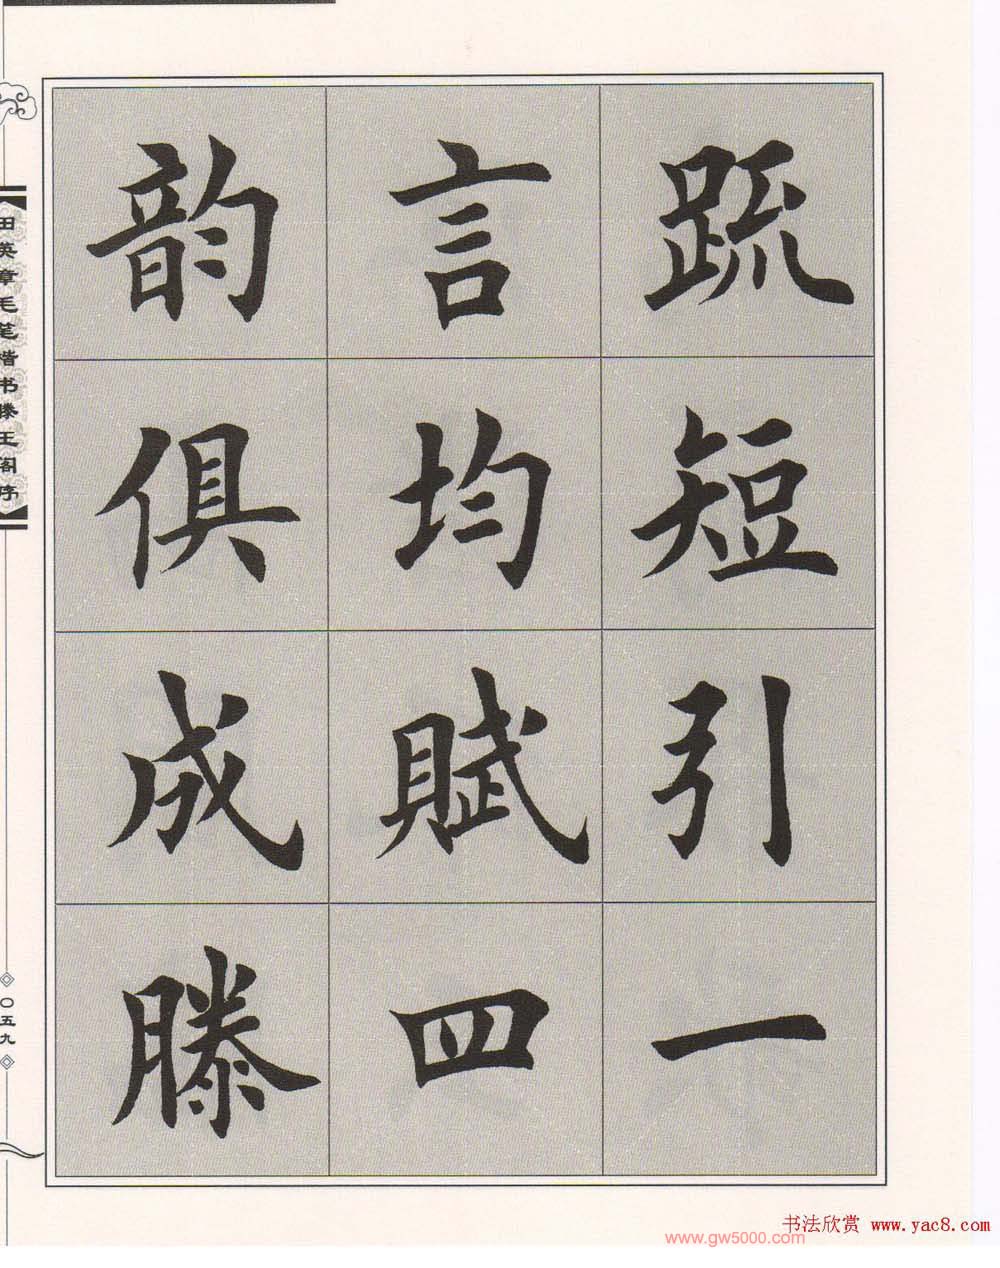 䟽短引一
言均賦四
韵俱成滕
田英章毛笔楷书滕王阁序
〇五九
书法欣赏 www.yac8.com
www.gw5000.com